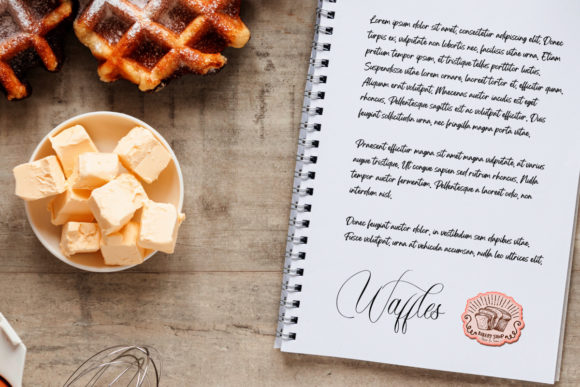 Lorem ipsum dolor sit amet, consectetur adipiscing elit. Donec
turpis ex, vulputate non lobortis nec, facilisis vitae urna. Etiam
pretium tempor ipsum, et tristique tellus porttitor luctus.
Suspendisse vitae lorem ornare, laoreet tortor et, efficitur quam.
Aliquam erat volutpat. Maecenas auctor iaculis est eget
rhoncus. Pellentesque sagittis est ac volutpat efficitur. Duis
feugiat sollicitudin urna, nec fringilla magna porta vitae.
Praesent efficitur magna sit amet magna vulputate, at varius
augue tristique. Ut congue sapien sed rutrum rhoncus. Nulla
tempor auctor fermentum. Pellentesque a laoreet odio, non
interdum nisl.
Donec feugiat auctor dolor, in vestibulum sem dapibus vitae.
Fusce volutpat, urna at vehicula accumsan, nulla leo ultrices elit,
Waffles
BAKERY SHOP